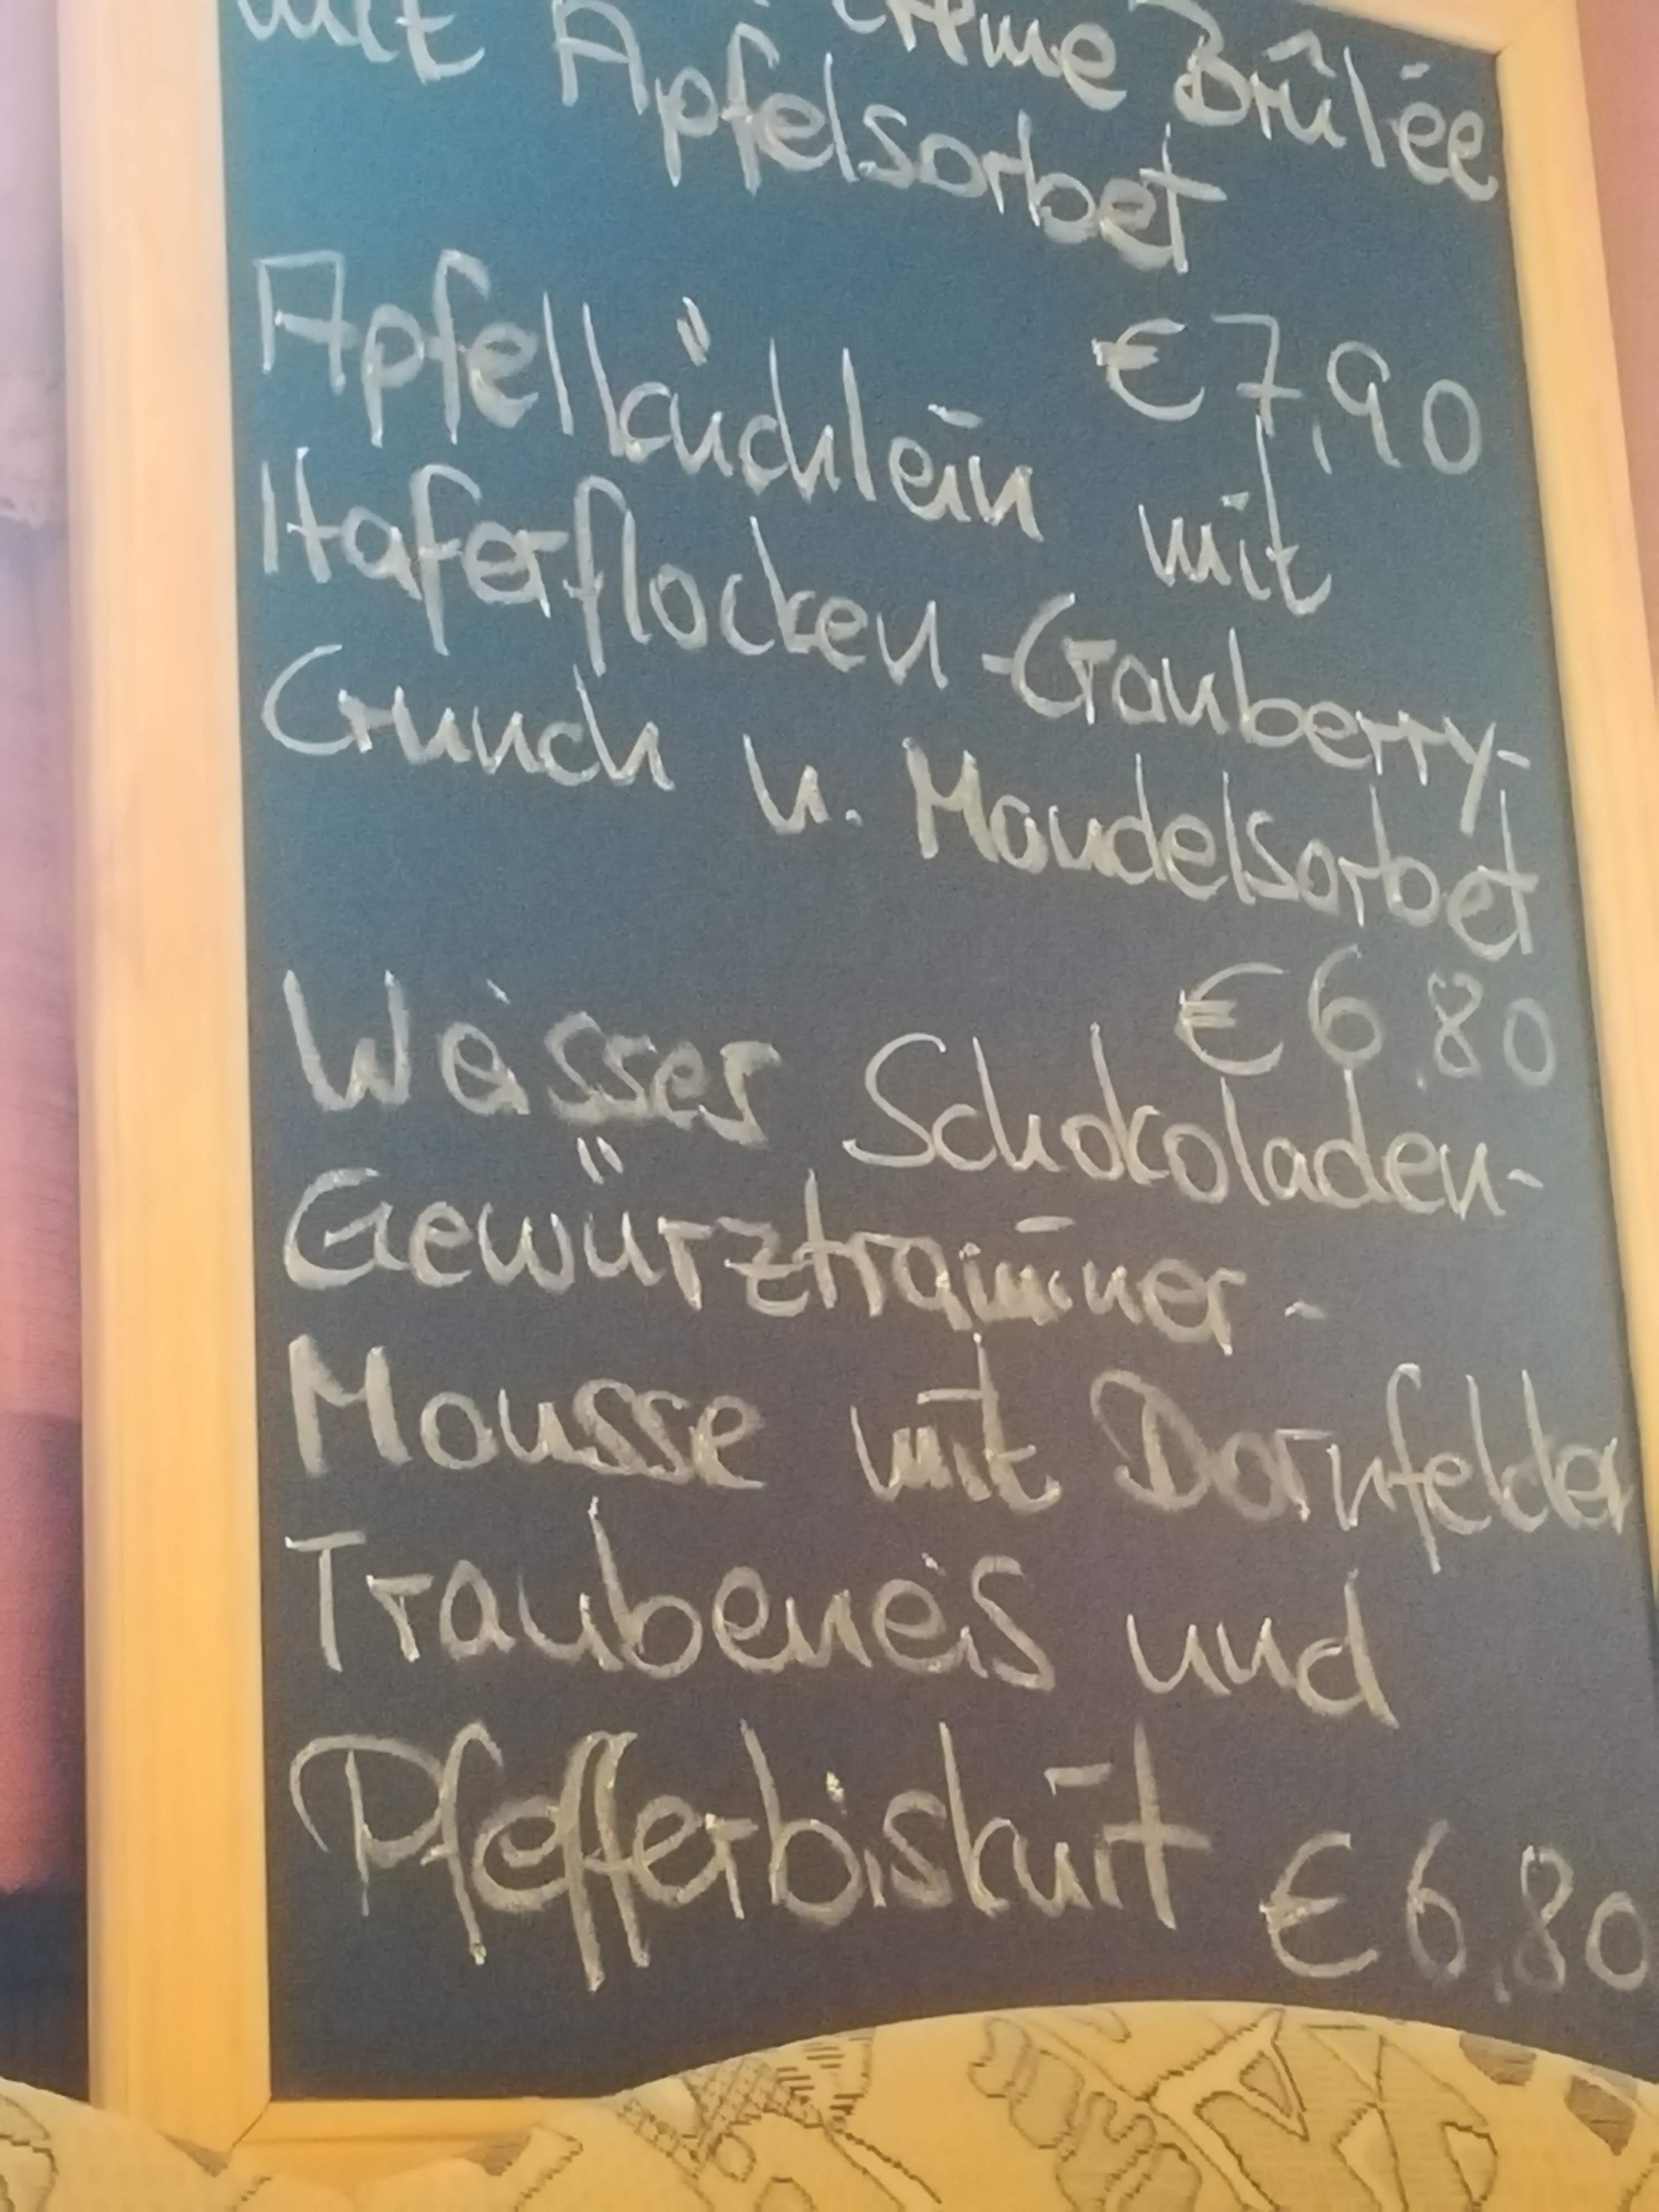 mit Crème Brûlée
Apfelsorbet
€ 7,90
Apfelküchlein mit
Haferflocken-Cranberry-
Crunch u. Mandelsorbet
€ 6,80
Weisses Schokoladen-
Gewürztraminer-
Mousse mit Dornfelder
Traubeneis und
Pfefferbiskuit € 6,80